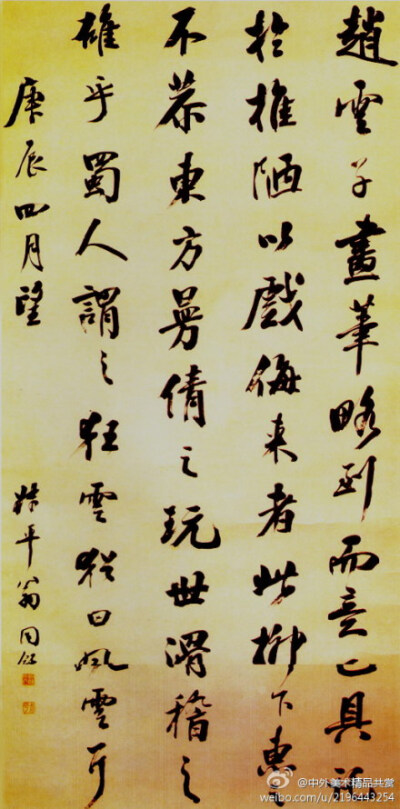 趙雲子畫筆略到而意已具工
於椎陋以戲侮来者此柳下惠
不恭東方曼倩之玩世滑稽之
雄乎蜀人謂之狂雲猶曰風雲耳
庚辰四月望
叔平翁同龢
@中外美术精品共赏
weibo.com/u/2196443254